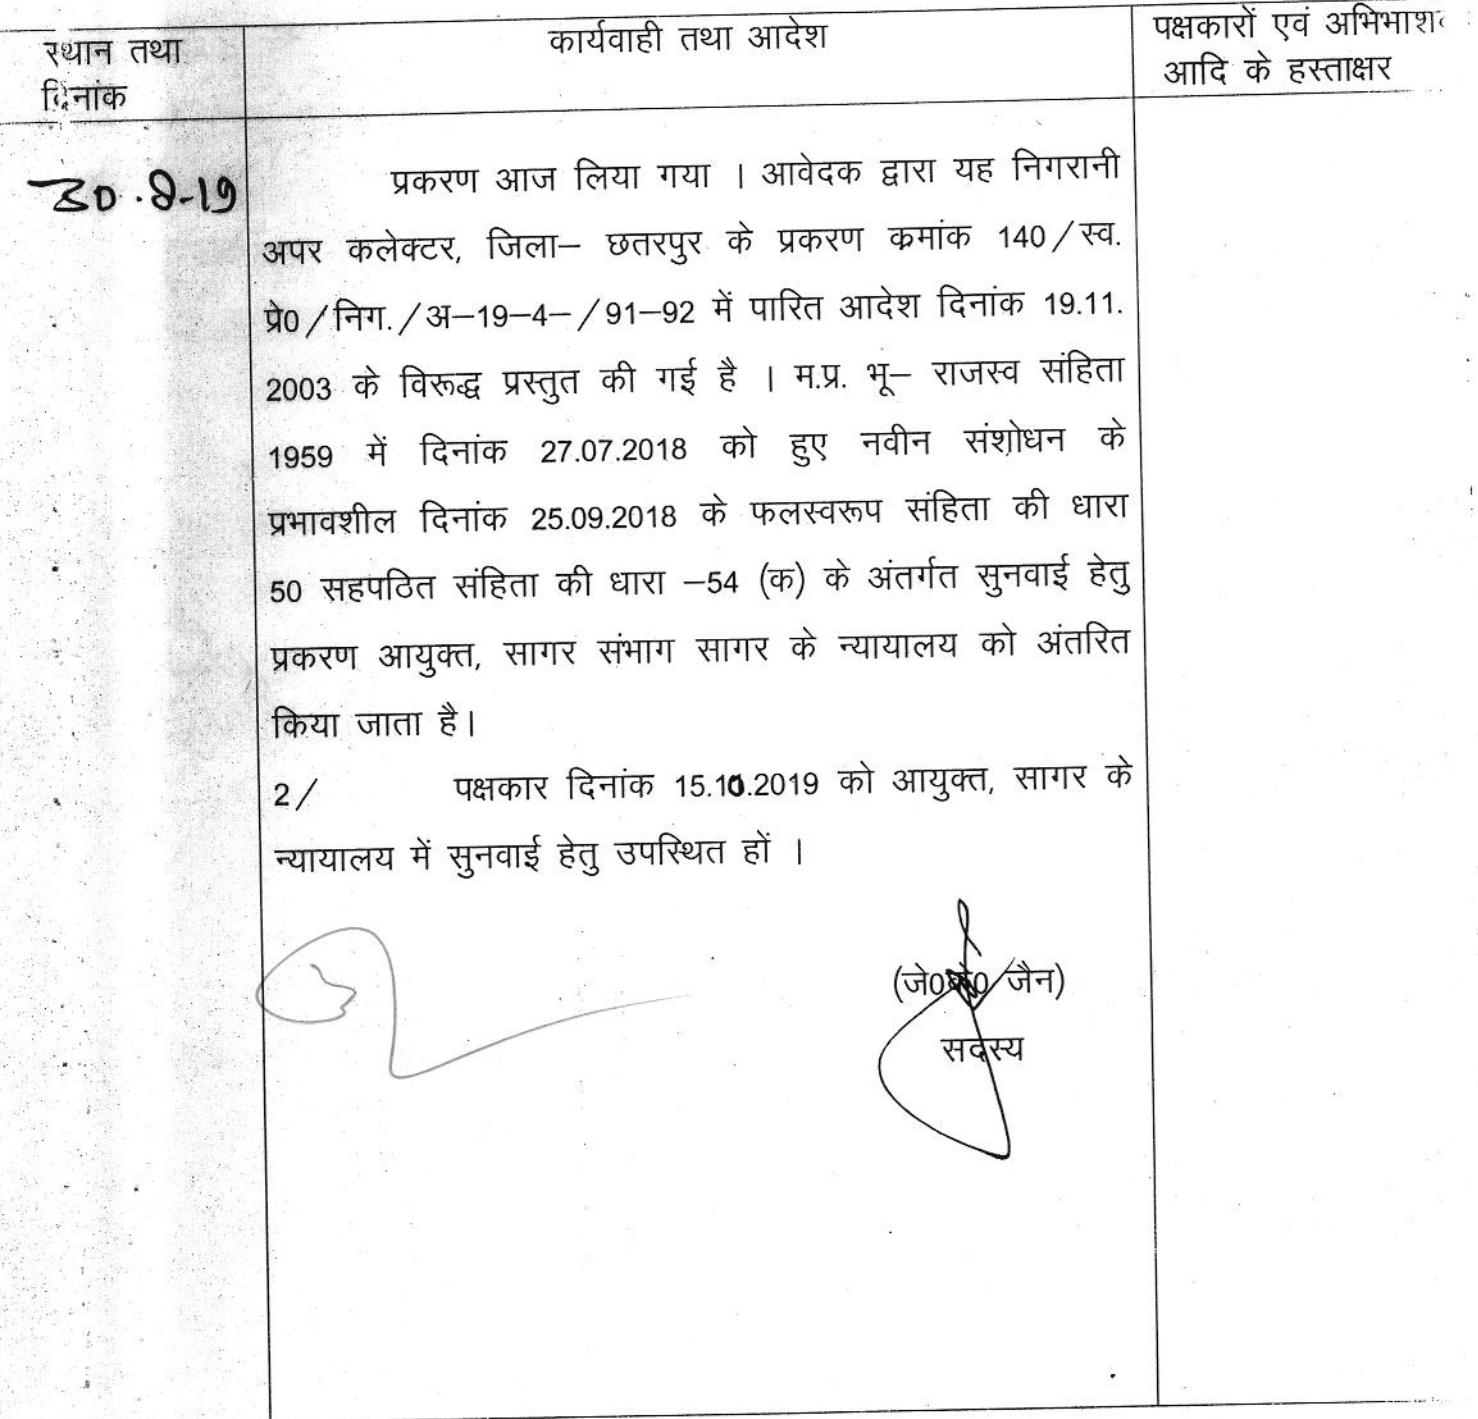 स्थान तथा
दिनांक
कार्यवाही तथा आदेश
पक्षकारों एवं
आदि के हस्ताक्षर
30.8-19
प्रकरण आज लिया गया । आवेदक द्वारा यह निगरानी
अपर कलेक्टर, जिला– छतरपुर के प्रकरण क्रमांक 140/स्व.
प्रे0/निग./अ–19–4–/91–92 में पारित आदेश दिनांक 19.11.
2003 के विरूद्ध प्रस्तुत की गई है । म.प्र. भू– राजस्व संहिता
1959 में दिनांक 27.07.2018 को हुए नवीन संशोधन के
प्रभावशील दिनांक 25.09.2018 के फलस्वरूप संहिता की धारा
50 सहपठित संहिता की धारा –54 (क) के अंतर्गत सुनवाई हेतु
प्रकरण आयुक्त, सागर संभाग सागर के न्यायालय को अंतरित
किया जाता है।
2/ पक्षकार दिनांक 15.10.2019 को आयुक्त, सागर के
न्यायालय में सुनवाई हेतु उपस्थित हों ।
जैन)
सदस्य